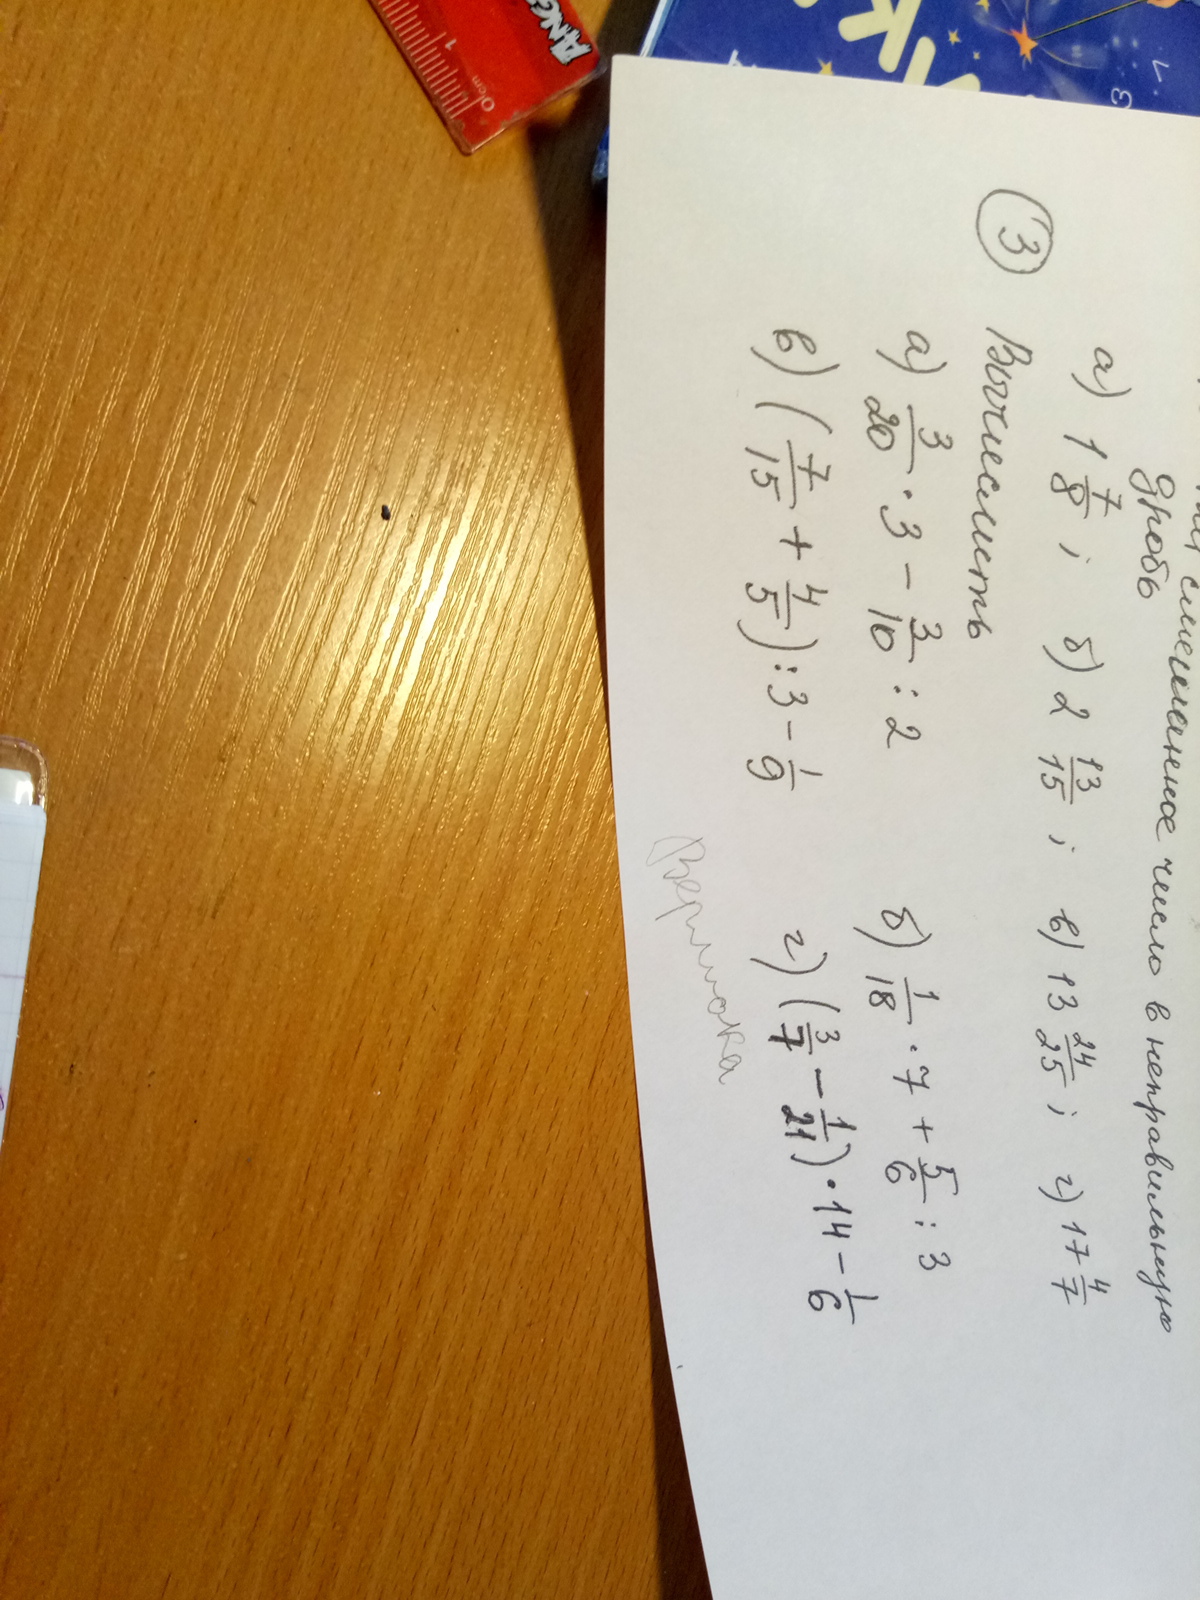 смешанное число в неправильную
дробь
а) 1 7/8 ; б) 2 13/15 ; в) 13 24/25 ; г) 17 4/7
3 Вычислить
а) 3/20 · 3 − 3/10 : 2 б) 1/18 · 7 + 5/6 : 3
в) (7/15 + 4/5) : 3 − 1/9 г) (3/7 − 1/21) · 14 − 1/6
0 cm 1